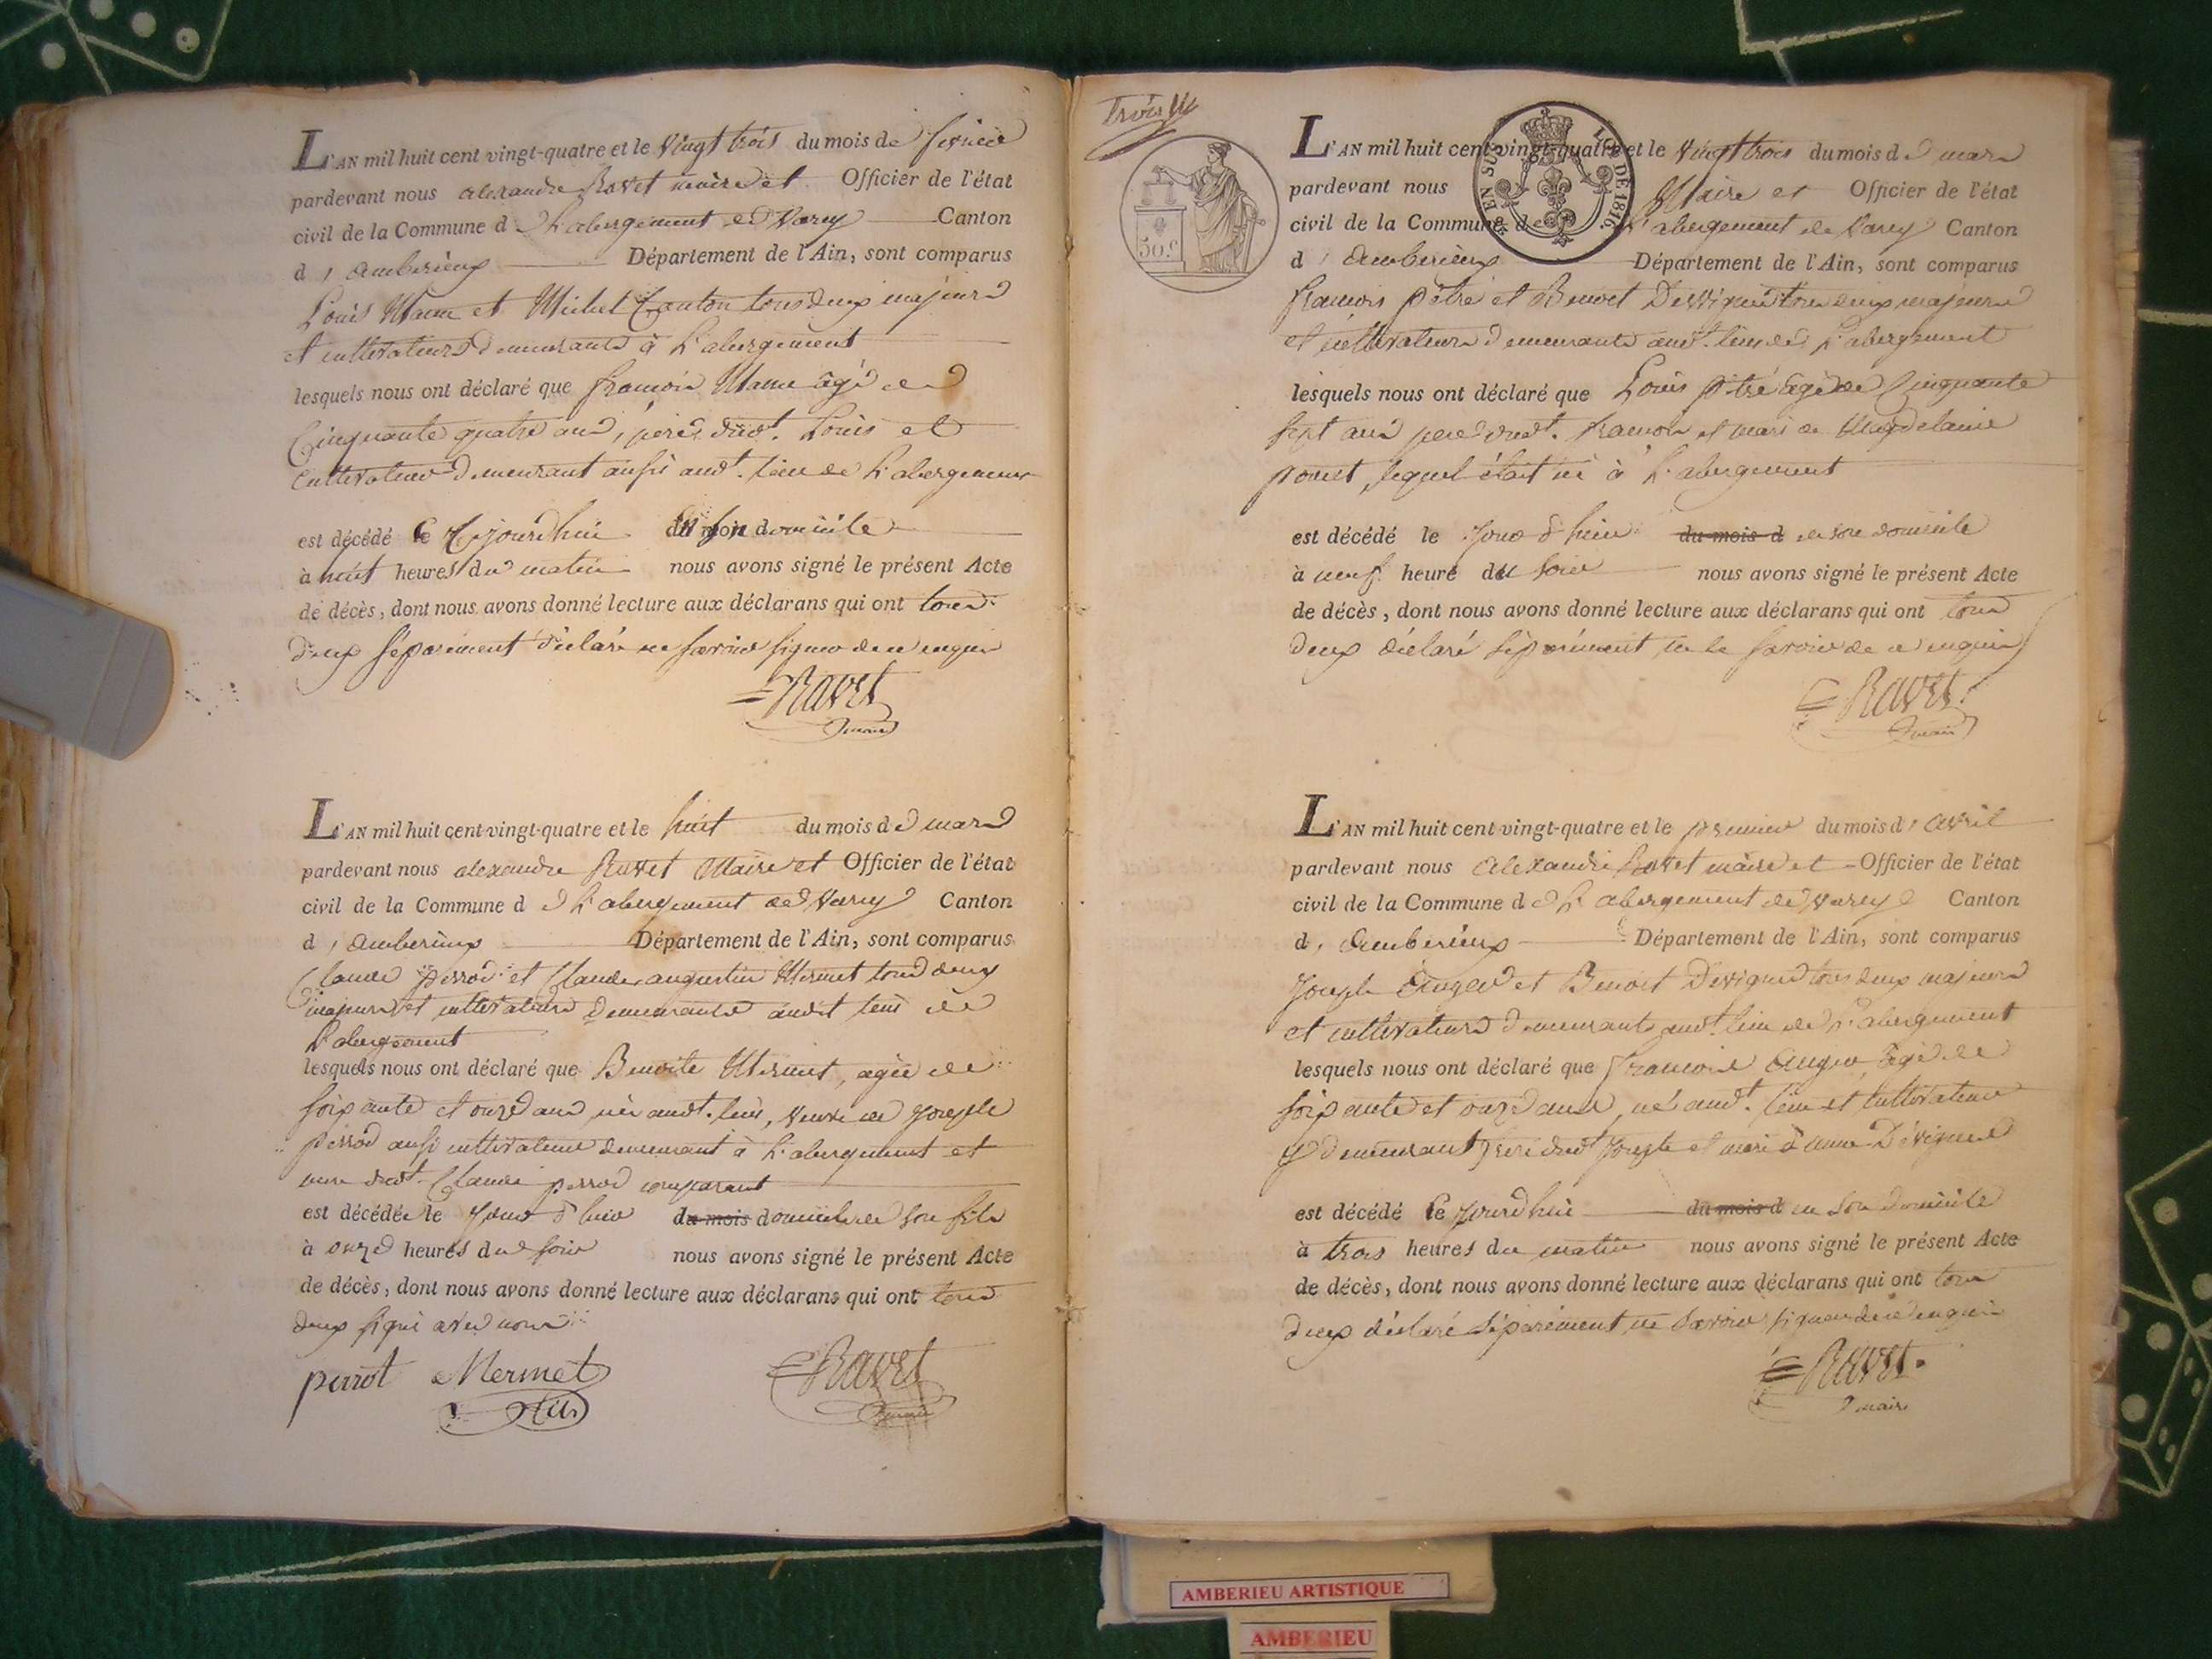 L'AN mil huit cent vingt-quatre et le vingt trois du mois de fevrier
pardevant nous alexandre Ravet maire et Officier de l'état
civil de la Commune d e L'abergement de Varey Canton
d'amberieux Département de l'Ain, sont comparus
Louis et Michel tous deux majeurs
et cultivateurs demeurants à L'abergement
lesquels nous ont déclaré que francois âgé de
Cinquante quatre ans, pere dudt. Louis et
Cultivateur demeurant aussi audt. lieu de L'abergement
est décédé Ce jourdhui en son domicile
à huit heures du matin nous avons signé le présent Acte
de décès, dont nous avons donné lecture aux déclarans qui ont tous
deux séparément déclaré ne savoir signer de ce enquis
Ravet
maire
L'AN mil huit cent vingt-quatre et le huit du mois de mars
pardevant nous alexandre Ravet Maire et Officier de l'état
civil de la Commune d e L'abergement de Varey Canton
d'amberieux Département de l'Ain, sont comparus
Claude perrod et Claude augustin Mermet tous deux
majeurs et cultivateurs demeurants audit lieu de
L'abergement
lesquels nous ont déclaré que Benoite Mermet, agée de
soixante et onze ans née audt. lieu, veuve de Joseph
perrod aussi cultivateur demeurant à L'abergement et
mere dudt. Claude perrod comparant
est décédée le Jour d'hier du mois domicile de son fils
à onze heures du soir nous avons signé le présent Acte
de décès, dont nous avons donné lecture aux déclarans qui ont tous
deux signé avec nous
perrot Mermet fils Ravet
maire
trois
50.c
EN SUS LOI DE 1816.
L'AN mil huit cent vingt-quatre et le vingt trois du mois de mars
pardevant nous Maire et Officier de l'état
civil de la Commune de L'abergement de Varey Canton
d'amberieux Département de l'Ain, sont comparus
francois pitre et Benoit Devigne tous deux majeurs
et cultivateurs demeurants audt. lieu de L'abergement
lesquels nous ont déclaré que Louis pitre âgé de Cinquante
sept ans pere dudt. francois et mari de Magdelaine
lequel était né à L'abergement
est décédé le Jour d'hier du mois d en son domicile
à neuf heure du soir nous avons signé le présent Acte
de décès, dont nous avons donné lecture aux déclarans qui ont tous
deux déclaré séparément ne le savoir de ce enquis
Ravet
maire
L'AN mil huit cent vingt-quatre et le premier du mois d'avril
pardevant nous alexandre Ravet maire et Officier de l'état
civil de la Commune d e L'abergement de Varey Canton
d'amberieux Département de l'Ain, sont comparus
Joseph Auger et Benoit Devigne tous deux majeurs
et cultivateurs demeurants audt. lieu de L'abergement
lesquels nous ont déclaré que francois Auger âgé de
soixante et onze ans, né audt. lieu et Cultivateur
y demeurant pere dudt Joseph et mari à anne Devigne
est décédé Ce jourdhui du mois d en son domicile
à trois heures du matin nous avons signé le présent Acte
de décès, dont nous avons donné lecture aux déclarans qui ont tous
deux déclaré séparément ne savoir signer de ce enquis
Ravet
maire
AMBERIEU ARTISTIQUE
AMBERIEU